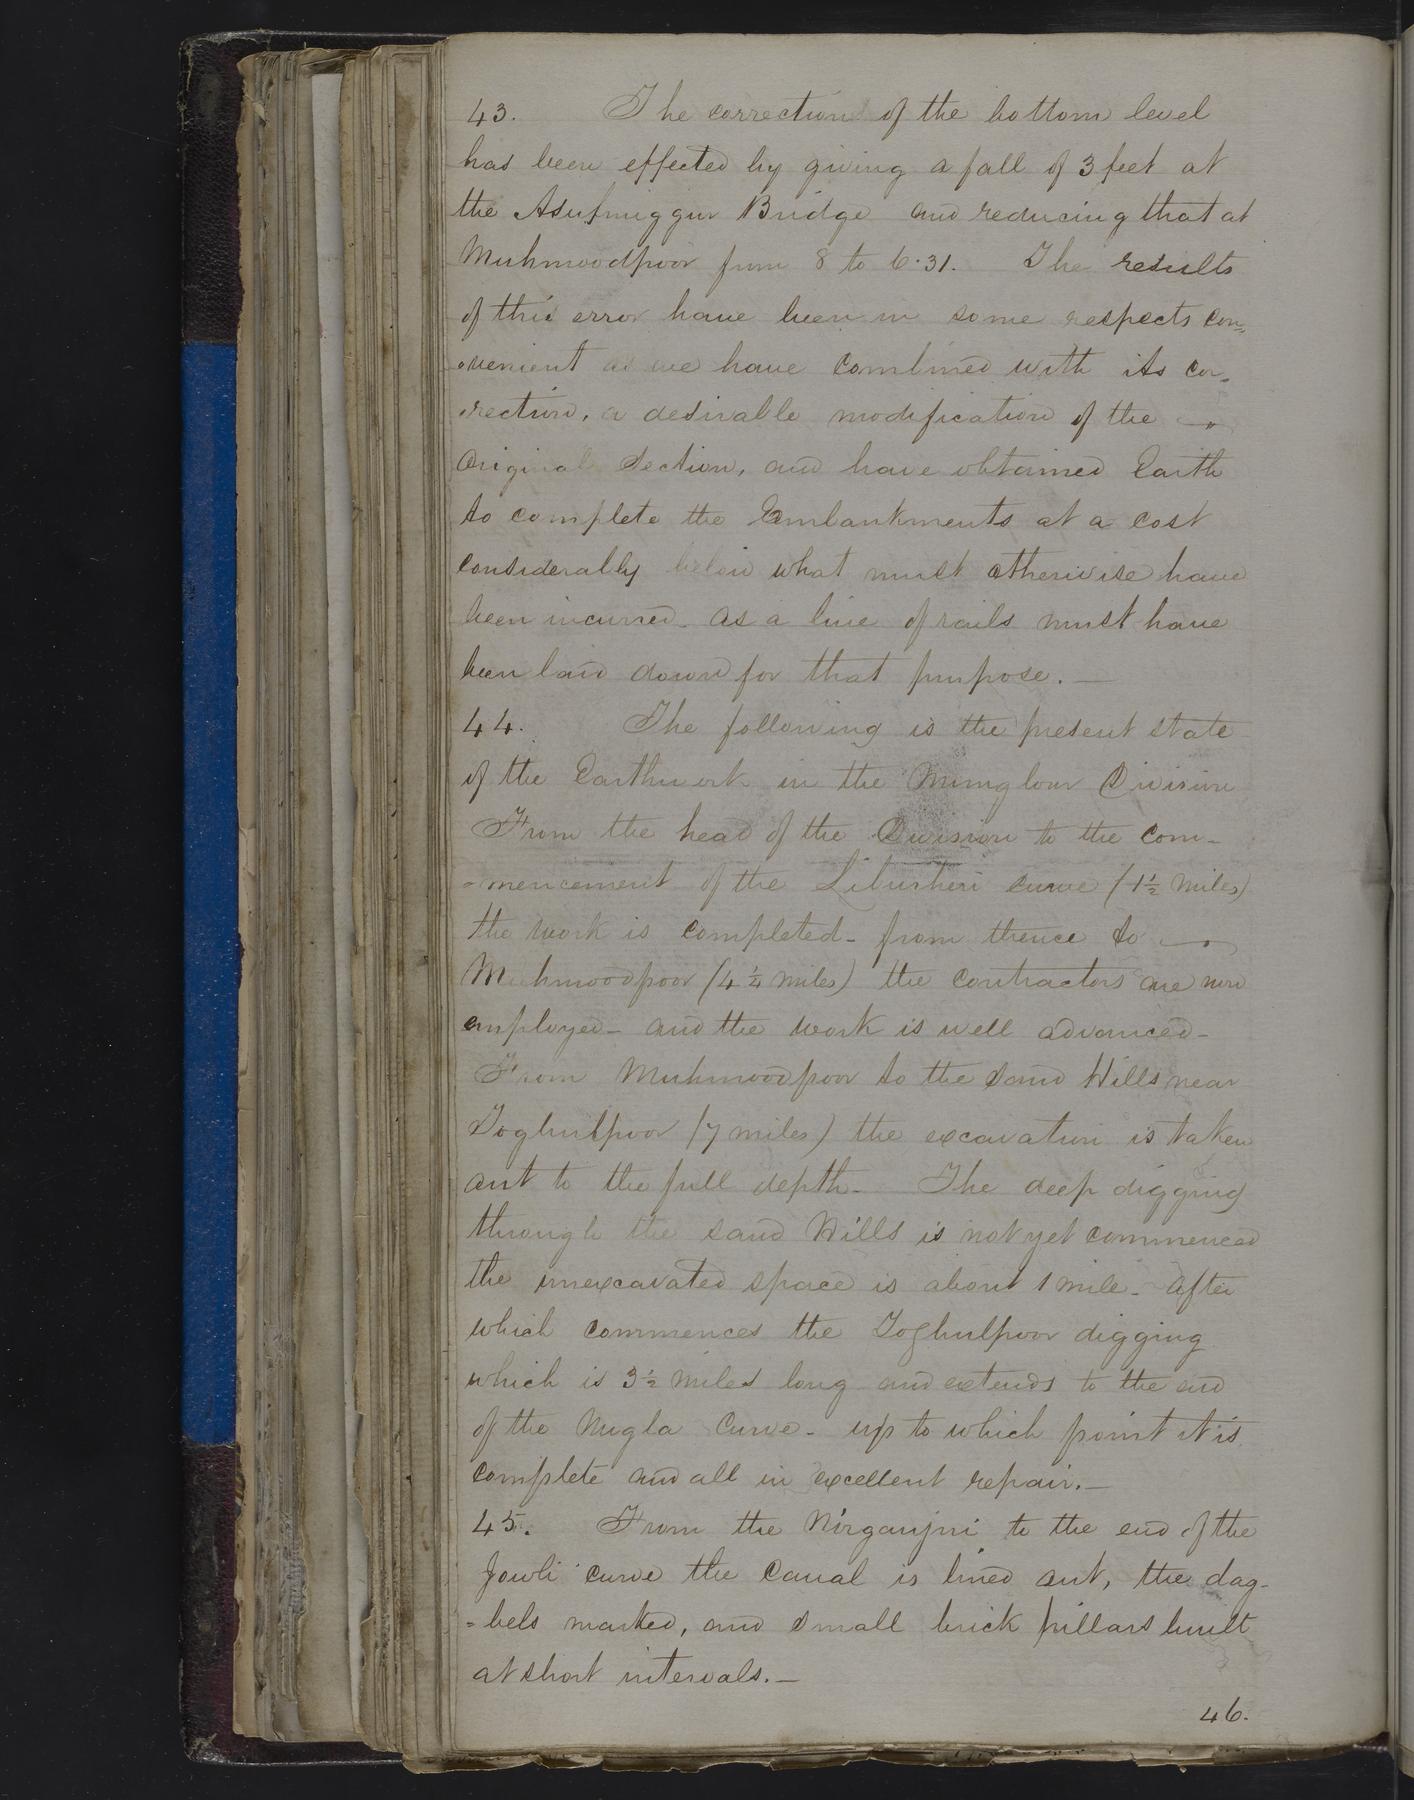 43. The correction of the bottom level
has been effected by giving a fall of 3 feet at
the Asufnuggur Bridge and reducing that at
Muhmoodpoor from 8 to 6.31. The results
of this error have been in some respects con=
=venient as we have combined with its cor=
=rection, a desirable modification of the
Original Section, and have obtained Earth
to complete the Embankments at a cost
considerably below what must otherwise have
been incurred - as a line of rails must have
been laid down for that purpose. —
44. The following is the present state
of the Earthwork in the Munglour Division
From the head of the Division to the com-
=mencement of the Liburheri curve (1½ miles)
the work is completed - from thence to
Muhmoodpoor (4¼ miles) the contractors are now
employed - and the work is well advanced -
From Muhmoodpoor to the Sand Hills near
Toghulpoor (7 miles) the excavation is taken
out to the full depth - The deep digging
through the sand Hills is not yet commenced
the unexcavated space is about 1 mile - after
which commences the Toghulpoor digging
which is 3½ miles long and extends to the end
of the Nugla Curve - up to which point it is
complete and all in excellent repair. —
45. From the Nirganjni to the end of the
Jowli curve the Canal is lined out, the dag-
=bels marked, and small brick pillars built
at short intervals. —
46.